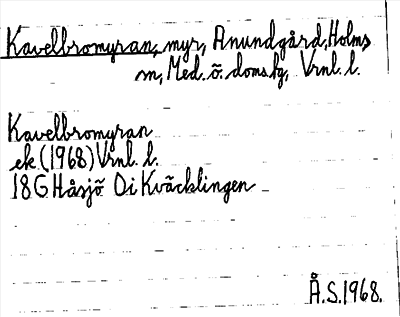 Kavelbromyran, myr, Anundgård, Holms
sn, Med. ö. domsbg, Vrnl. l.
Kavelbromyran
ek (1968) Vrnl. l.
18 G Håsjö Oi Kväcklingen
Å.S. 1968.